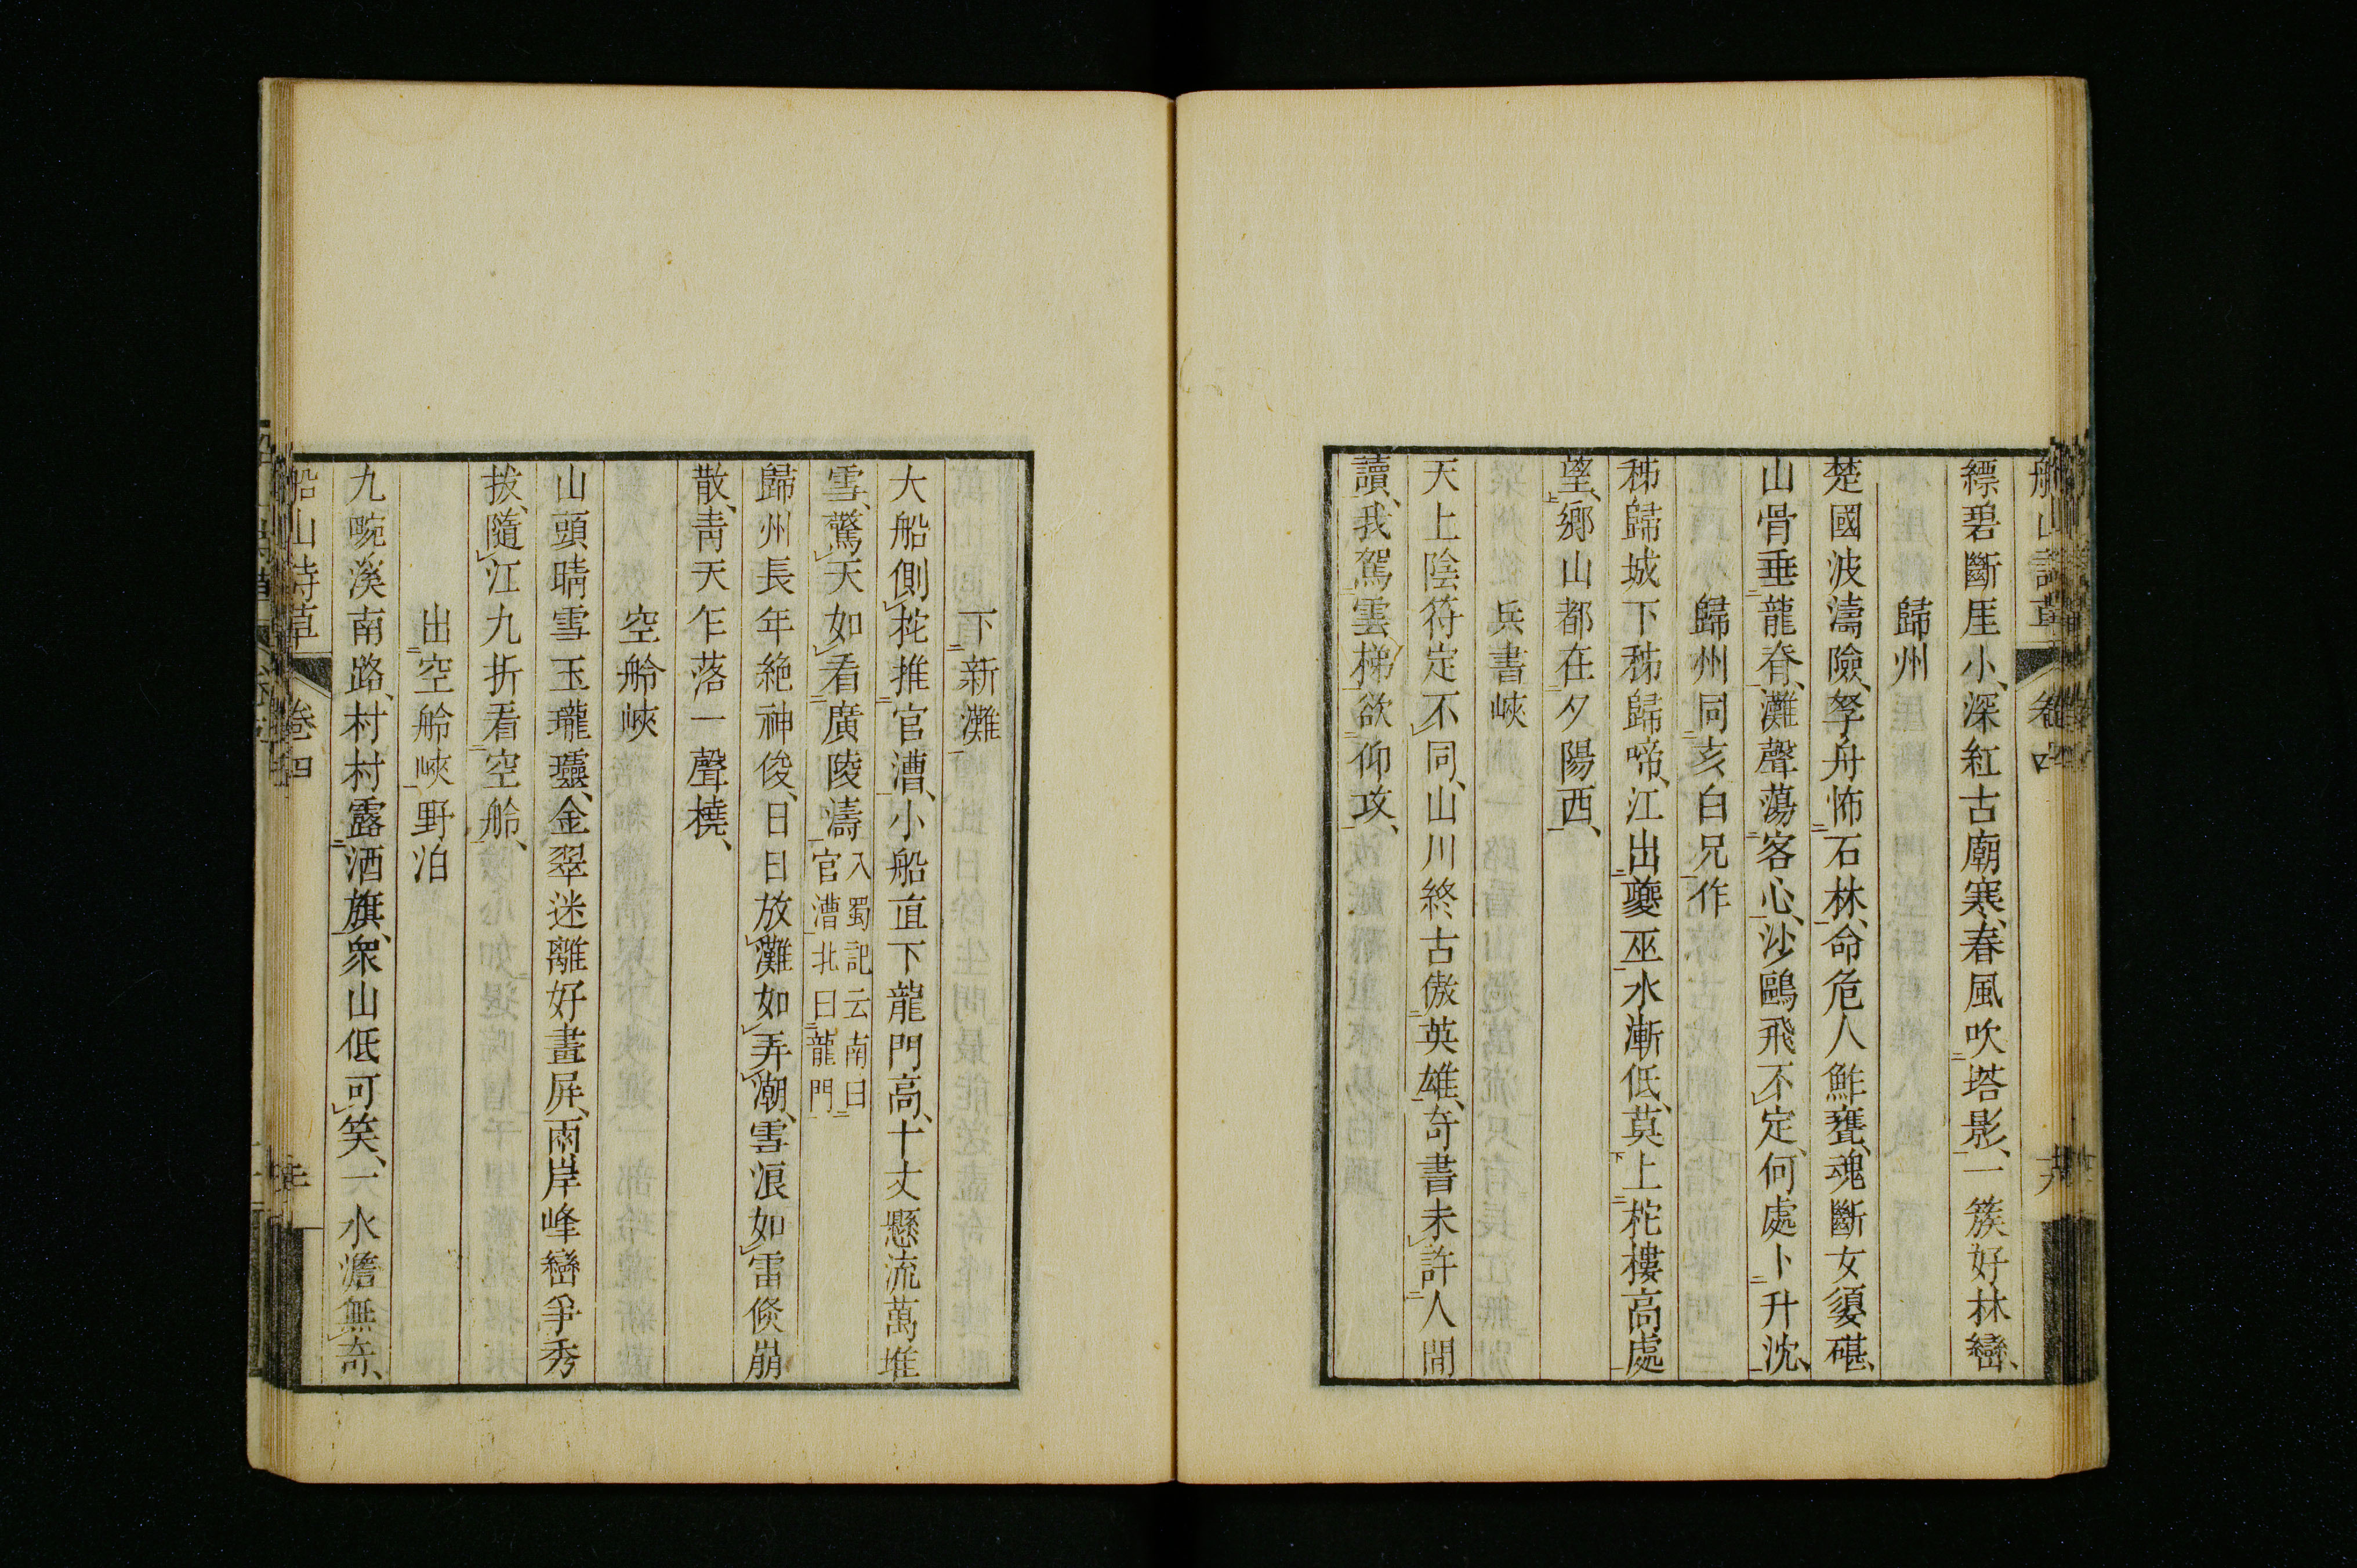 船山詩草 卷四 共
縹碧斷厓小、深紅古廟寒、春風吹塔影、一簇好林巒、
歸州
楚國波濤險、孥舟怖石林、命危人鮓甕、魂斷女嬃碪、
山骨垂龍脊、灘聲蕩客心、沙鷗飛不定、何處卜升沈、
歸州同亥白兄作
秭歸城下秭歸啼、江出夔巫水漸低、莫上柁樓高處
望、鄉山都在夕陽西、
兵書峽
天上陰符定不同、山川終古傲英雄、奇書未許人間
讀、我駕雲梯欲仰攻、
下新灘
大船側柁推官漕、小船直下龍門高、十丈懸流萬堆
雪、驚天如看廣陵濤入蜀記云南曰
官漕北曰龍門
歸州長年絶神俊、日日放灘如弄潮、雪浪如雷倏崩
散、青天乍落一聲橈、
空舲峽
山頭晴雪玉瓏瓏、金翠迷離好畫屏、兩岸峰巒爭秀
拔、隨江九折看空舲、
出空舲峽野泊
九畹溪南路、村村露酒旗、衆山低可笑、一水澹無奇、
船山詩草 卷四